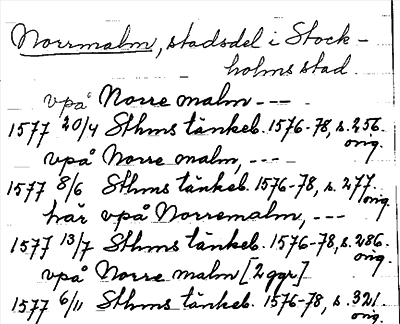 Norrmalm, stadsdel i Stock-
holms stad.
vpå Norre malm ---
1577 20/4 Sthms tänkeb. 1576-78, s. 256.
orig.
vpå Norre malm, ---
1577 8/6 Sthms tänkeb. 1576-78, s. 277.
orig.
här vpå Norremalm, ---
1577 13/7 Sthms tänkeb. 1576-78, s. 286.
orig.
vpå Norre malm [2 ggr]
1577 6/11 Sthms tänkeb. 1576-78, s. 321.
orig.